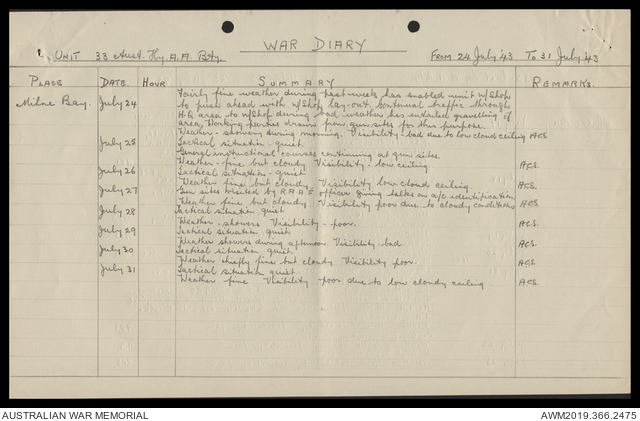 WAR DIARY
UNIT 33 Aust. Hy A.A. Bty. FROM 24 July '43 TO 31 July '43
PLACE DATE HOUR SUMMARY REMARKS.
Milne Bay. July 24 Fairly fine weather during past week has enabled unit w/shop
to push ahead with w/shop lay-out. Continual traffic through
H.Q area to w/shop during bad weather has entailed gravelling of
area, Working parties drawn from gun sites for this purpose.
Weather - showery during morning. Visibility - bad due to low cloud ceiling A.C.S.
July 25 Tactical situation - quiet.
General instructional courses continuing at gun sites
Weather - fine but cloudy Visibility - low ceiling. A.C.S.
July 26 Tactical situation - quiet
Weather fine but cloudy Visibility low cloud ceiling. A.C.S.
July 27 Gun sites visited by R.A.A.F. officer giving talks on a/c identification
Weather fine but cloudy. Visibility poor due to cloudy conditions A.C.S.
July 28 Tactical situation quiet
Weather - showers Visibility - poor. A.C.S.
July 29 Tactical situation quiet
Weather showers during afternoon Visibility bad A.C.S.
July 30 Tactical situation quiet.
Weather chiefly fine but cloudy Visibility poor. A.C.S.
July 31 Tactical situation quiet
Weather fine Visibility poor due to low cloudy ceiling A.C.S.
AUSTRALIAN WAR MEMORIAL AWM2019.366.2475